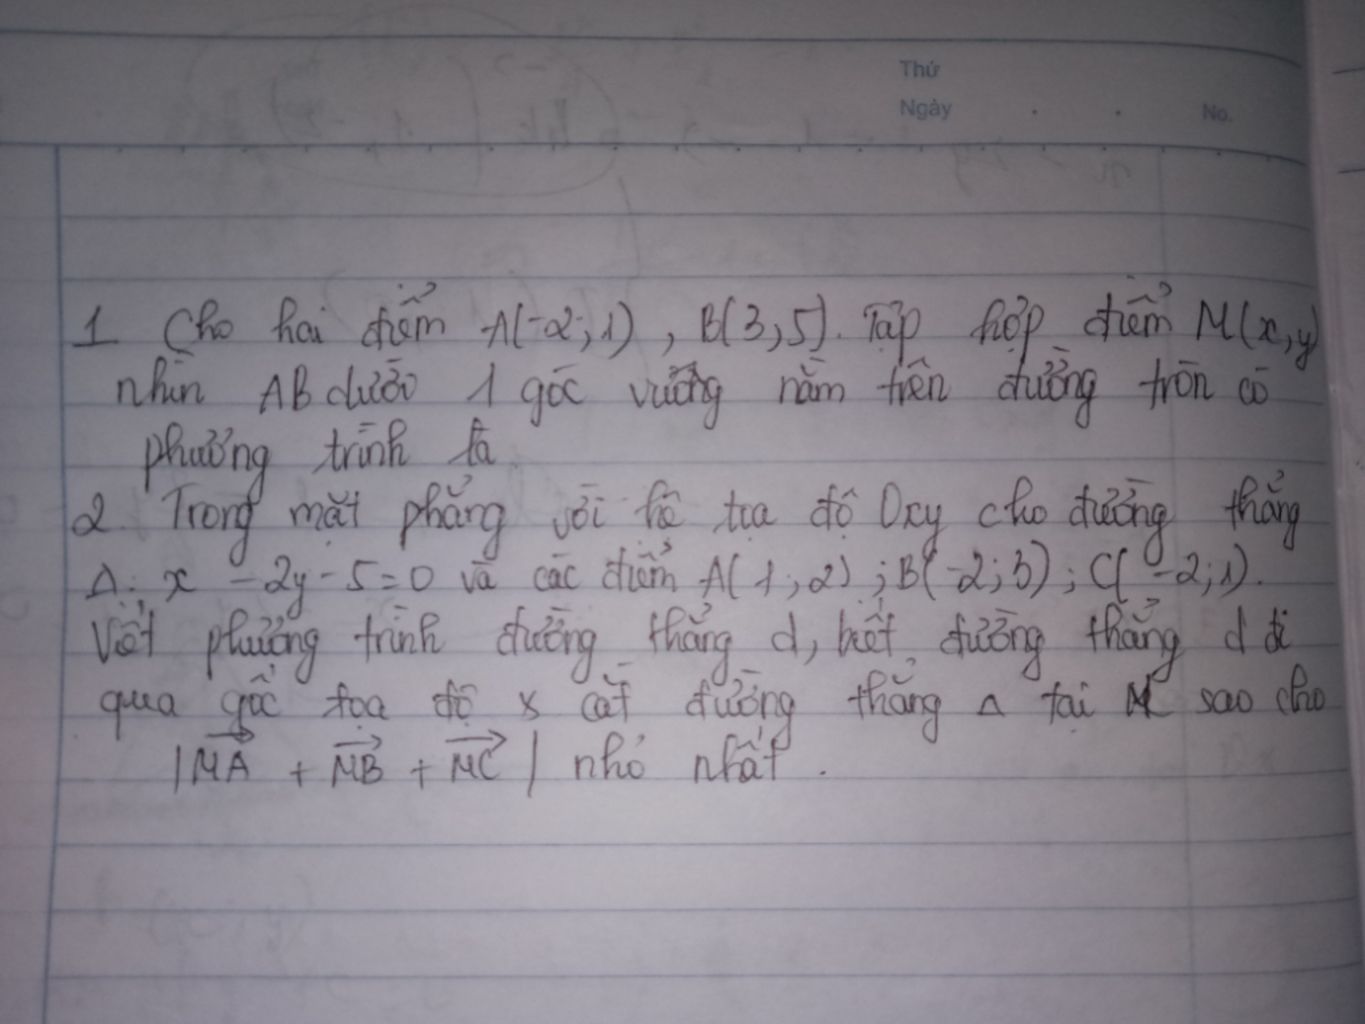 Thứ
Ngày
No.
1 Cho hai điểm A(-2;1), B(3,5). Tập hợp điểm M(x,y)
nhìn AB dưới 1 góc vuông nằm trên đường tròn có
phương trình là
2. Trong mặt phẳng với hệ tọa độ Oxy cho đường thẳng
Δ: x - 2y - 5 = 0 và các điểm A(1;2); B(-2;3); C(-2;1).
Viết phương trình đường thẳng d, biết đường thẳng d đi
qua gốc tọa độ & cắt đường thẳng Δ tại M sao cho
|MA + MB + MC| nhỏ nhất.